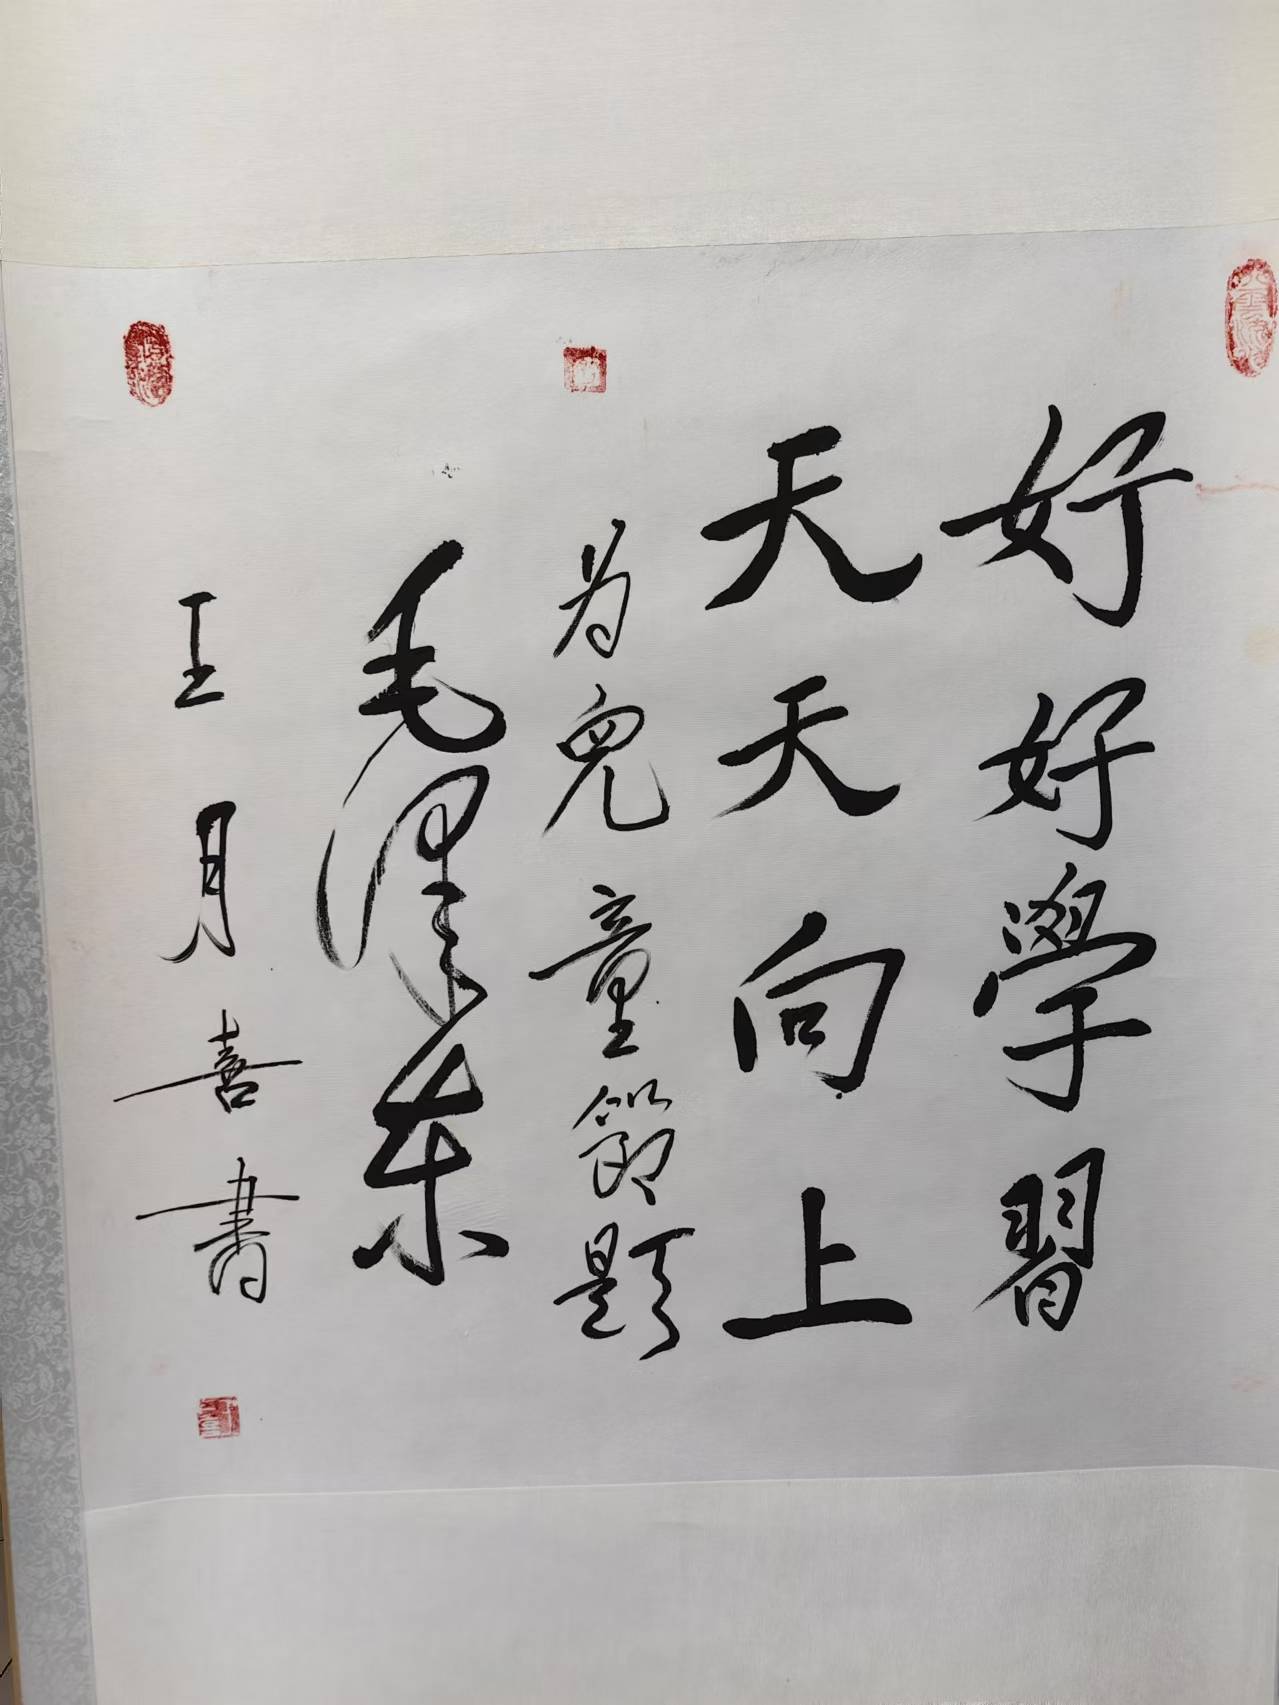 好好學習
天天向上
为兒童節题
毛澤东
王月喜書